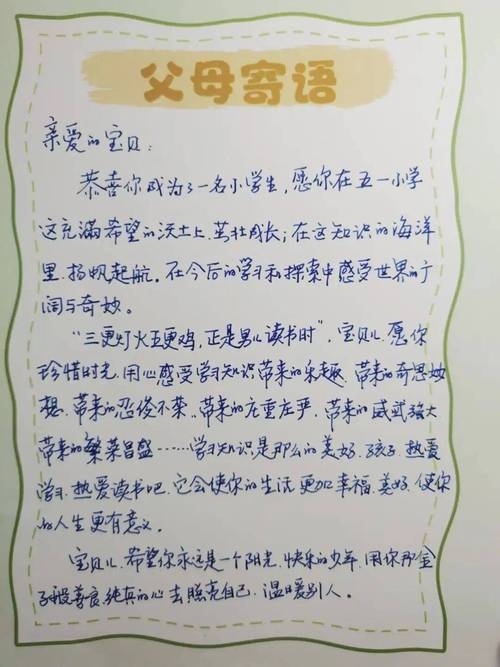 父母寄语
亲爱的宝贝：
恭喜你成为了一名小学生，愿你在五一小学
这充满希望的沃土上，茁壮成长；在这知识的海洋
里，扬帆起航。在今后的学习和探索中感受世界的广
阔与奇妙。
“三更灯火五更鸡，正是男儿读书时”，宝贝儿，愿你
珍惜时光，用心感受学习知识带来的乐趣、带来的奇思妙
想、带来的忍俊不禁、带来的庄重庄严、带来的威武强大
带来的繁荣昌盛……学习知识是那么的美好，孩子，热爱
学习，热爱读书吧，它会使你的生活更加幸福、美好，使你
的人生更有意义。
宝贝儿，希望你永远是一个阳光、快乐的少年，用你那金
子般善良纯真的心去照亮自己，温暖别人。